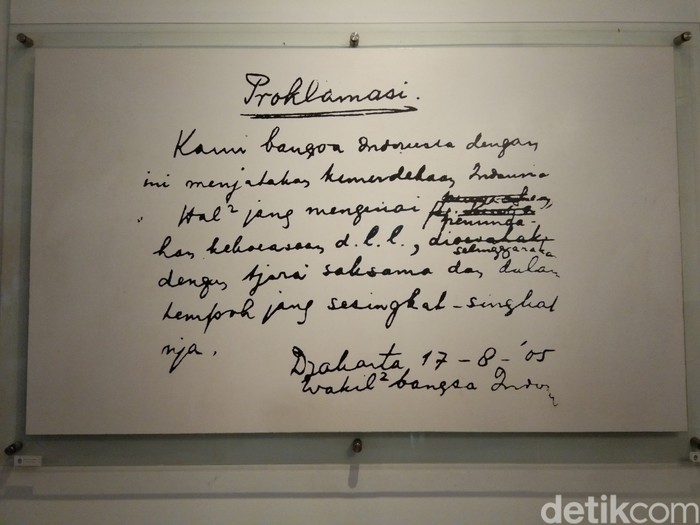 Proklamasi.
Kami bangsa Indonesia dengan
ini menjatakan kemerdekaan Indonesia
Hal² jang mengenai
peminda-
han kekoeasaan d.l.l., diselenggaraka
dengan tjara saksama dan dalam
tempoh jang sesingkat-singkat
nja.
Djakarta, 17 - 8 - '05
Wakil² bangsa Indon
detikcom